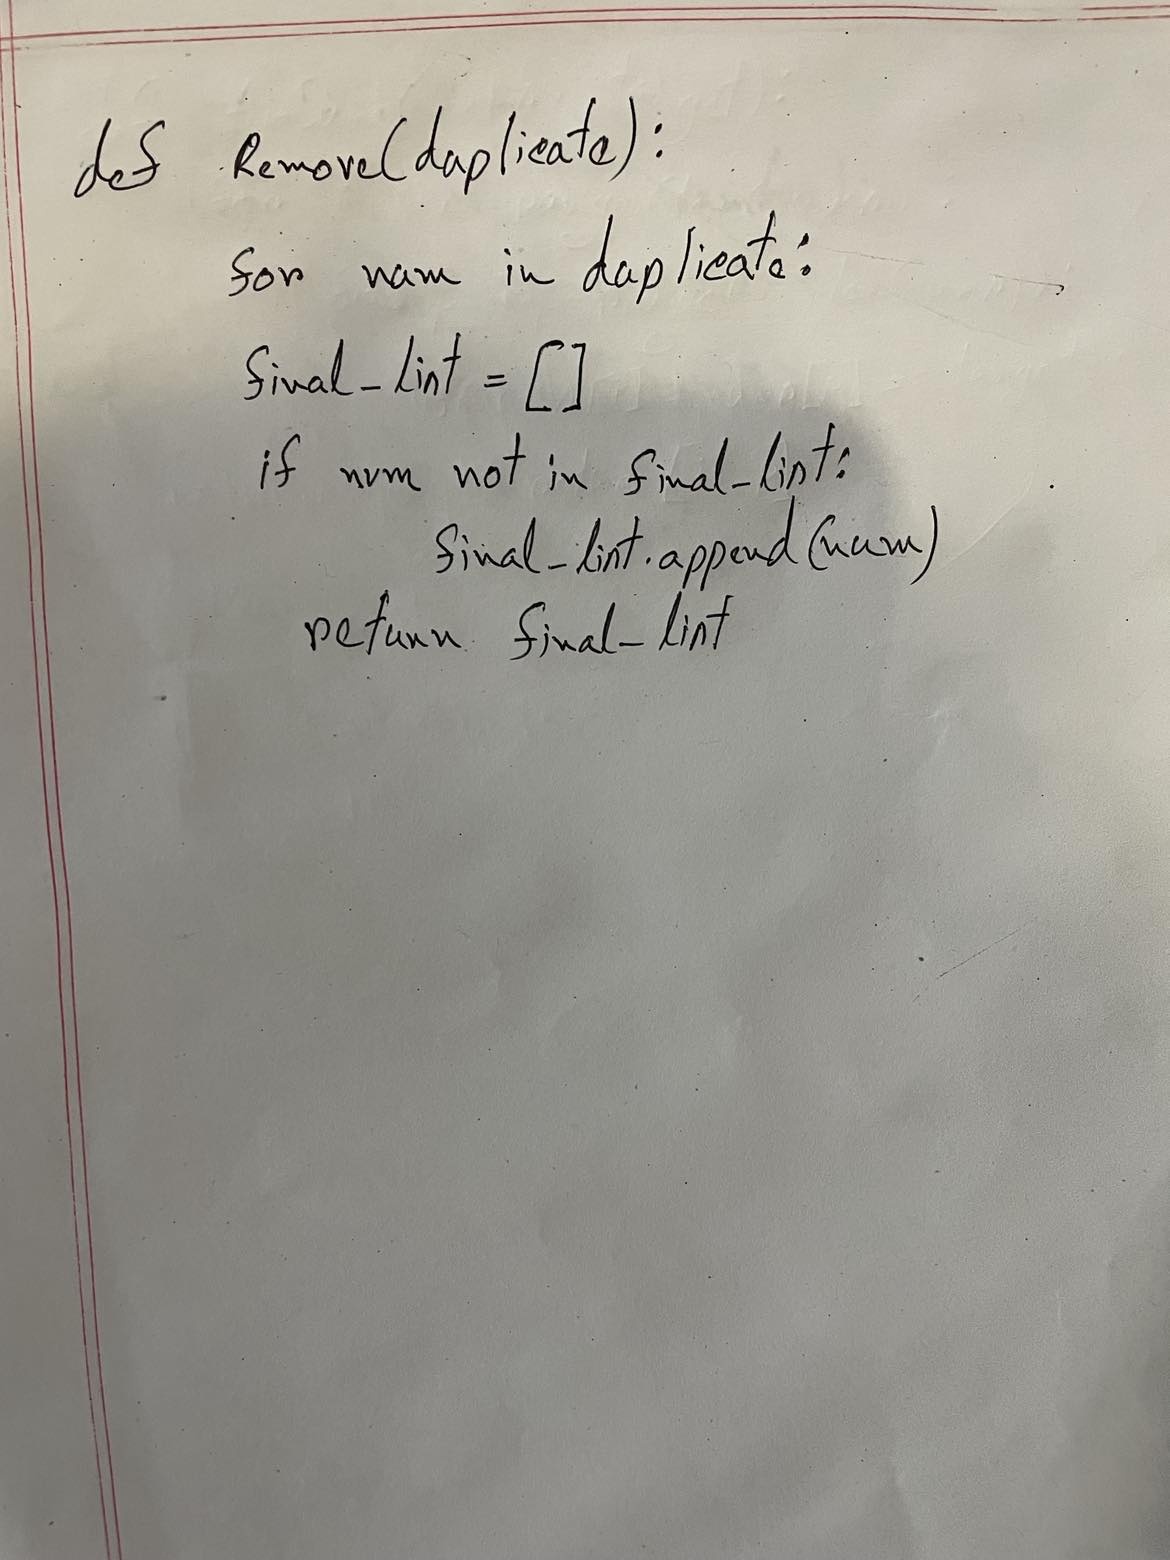 def Remove(duplicate):
for num in duplicate:
final_list = []
if num not in final_list:
final_list.append(num)
return final_list